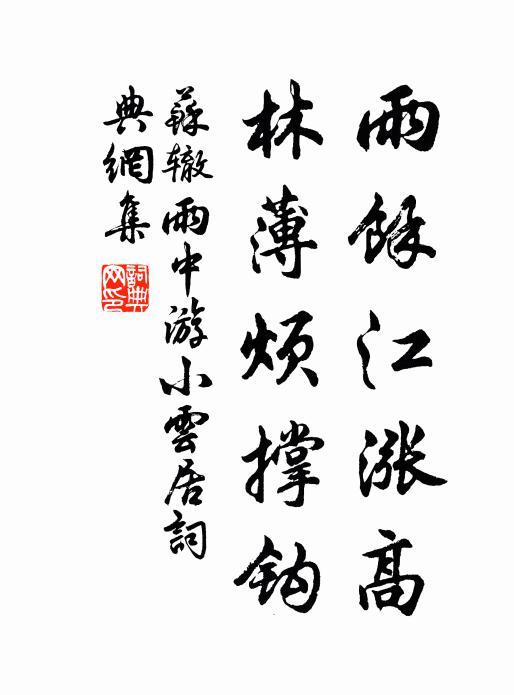 雨餘江漲高
林薄煩撐鈎
蘇辙雨中游小雲居詞
典網集
詞典网印